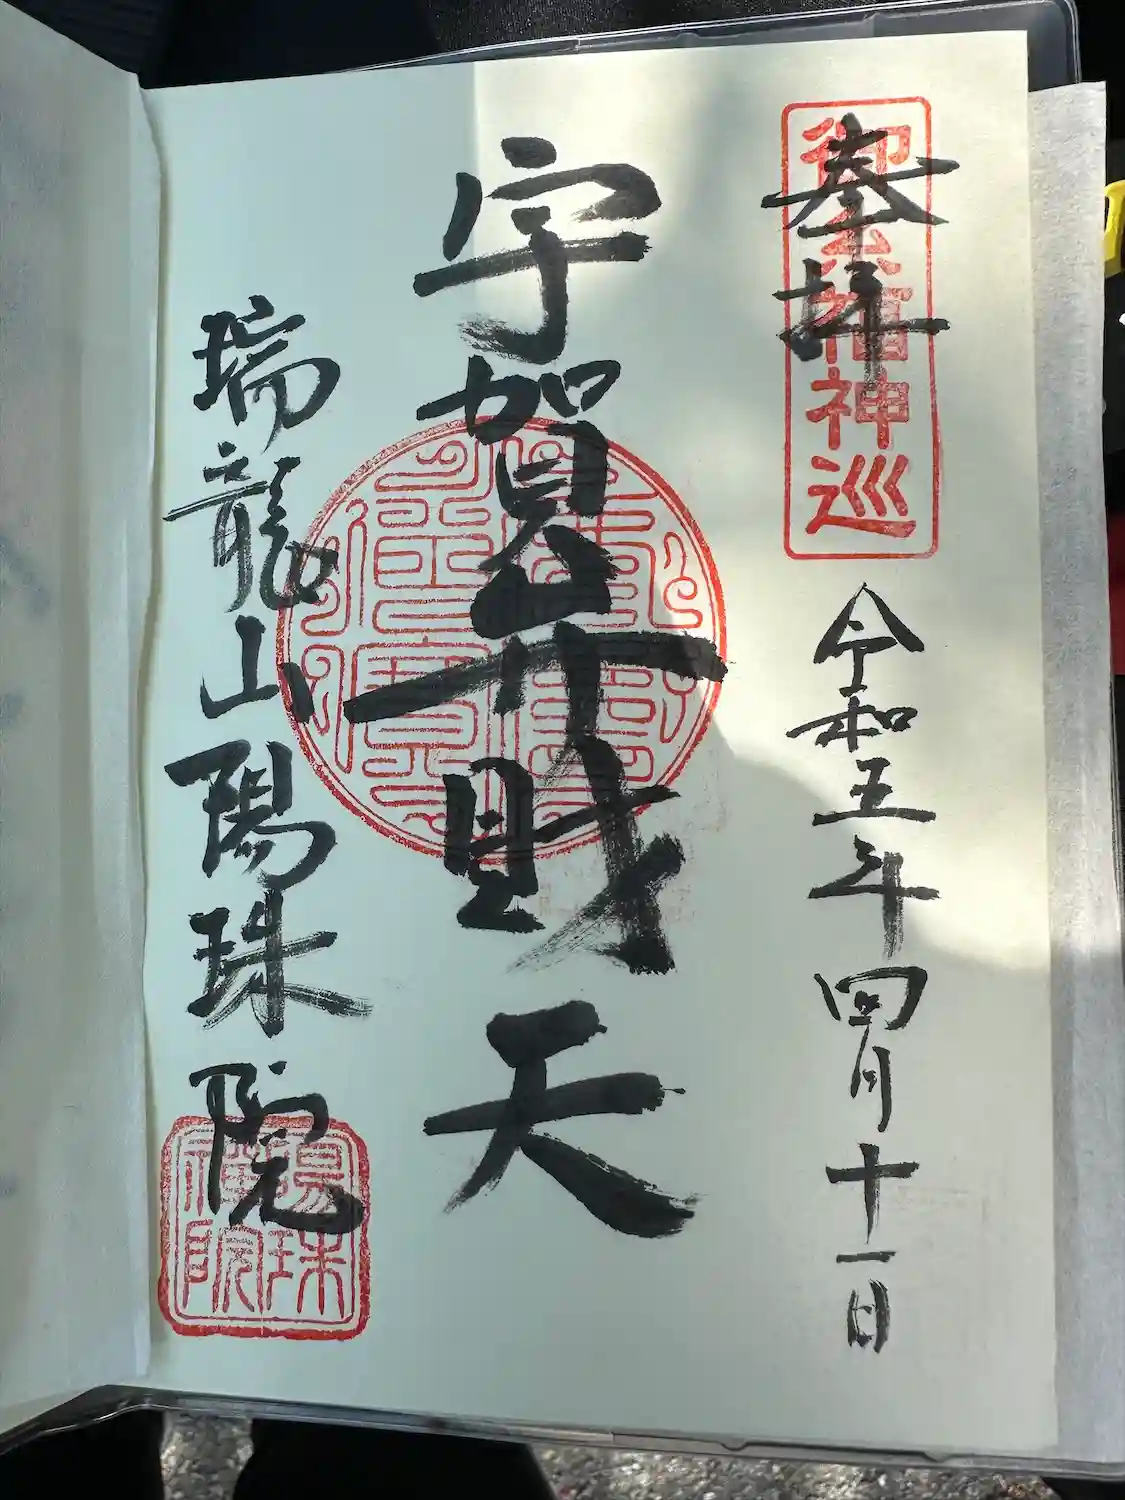 奉拝
御
福神巡
令和五年四月十一日
宇賀弁財天
瑞龍山陽珠院
陽珠
禅院